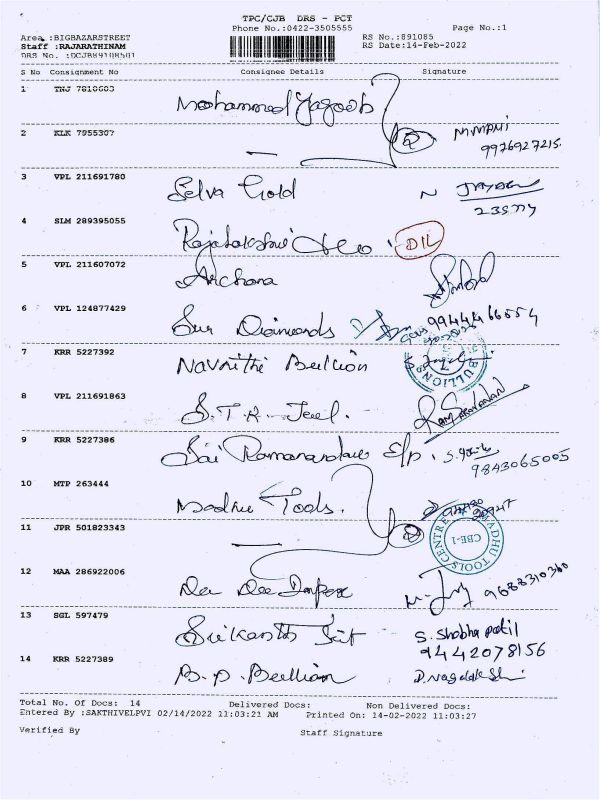 TPC/CJB DRS - PCT
Phone No.:0422-3505555 Page No.:1
Area :BIGBAZARSTREET RS No.:891085
Staff :RAJARATHINAM RS Date:14-Feb-2022
DRS No. :DCJB89108501
S No Consignment No Consignee Details Signature
1 TNJ 7810603 Mohammed Yagoob
2 KLK 7955307 — 2 MMANI
9976927215
3 VPL 211691780 Selva Gold
4 SLM 289395055 DIL
5 VPL 211607072 Archana
6 VPL 124877429 Sun Diamonds
7 KRR 5227392 Navnithi Bullion BULLION
8 VPL 211691863 S.T.R. Jewel.
9 KRR 5227386 Sai Ramanandass E/p.
9843065005
10 MTP 263444 Madhu Tools.
11 JPR 501823343 — 2 MADHU TOOLS CENTRE CBE-1
12 MAA 286922006 Dee Dee Impex 9688310360
13 SGL 597479 Srikanth Jeet S. Shobha patil
9442078156
14 KRR 5227389 B.P. Bullian D.Nagalakshmi
Total No. Of Docs: 14 Delivered Docs: Non Delivered Docs:
Entered By :SAKTHIVELPVI 02/14/2022 11:03:21 AM Printed On: 14-02-2022 11:03:27
Verified By Staff Signature